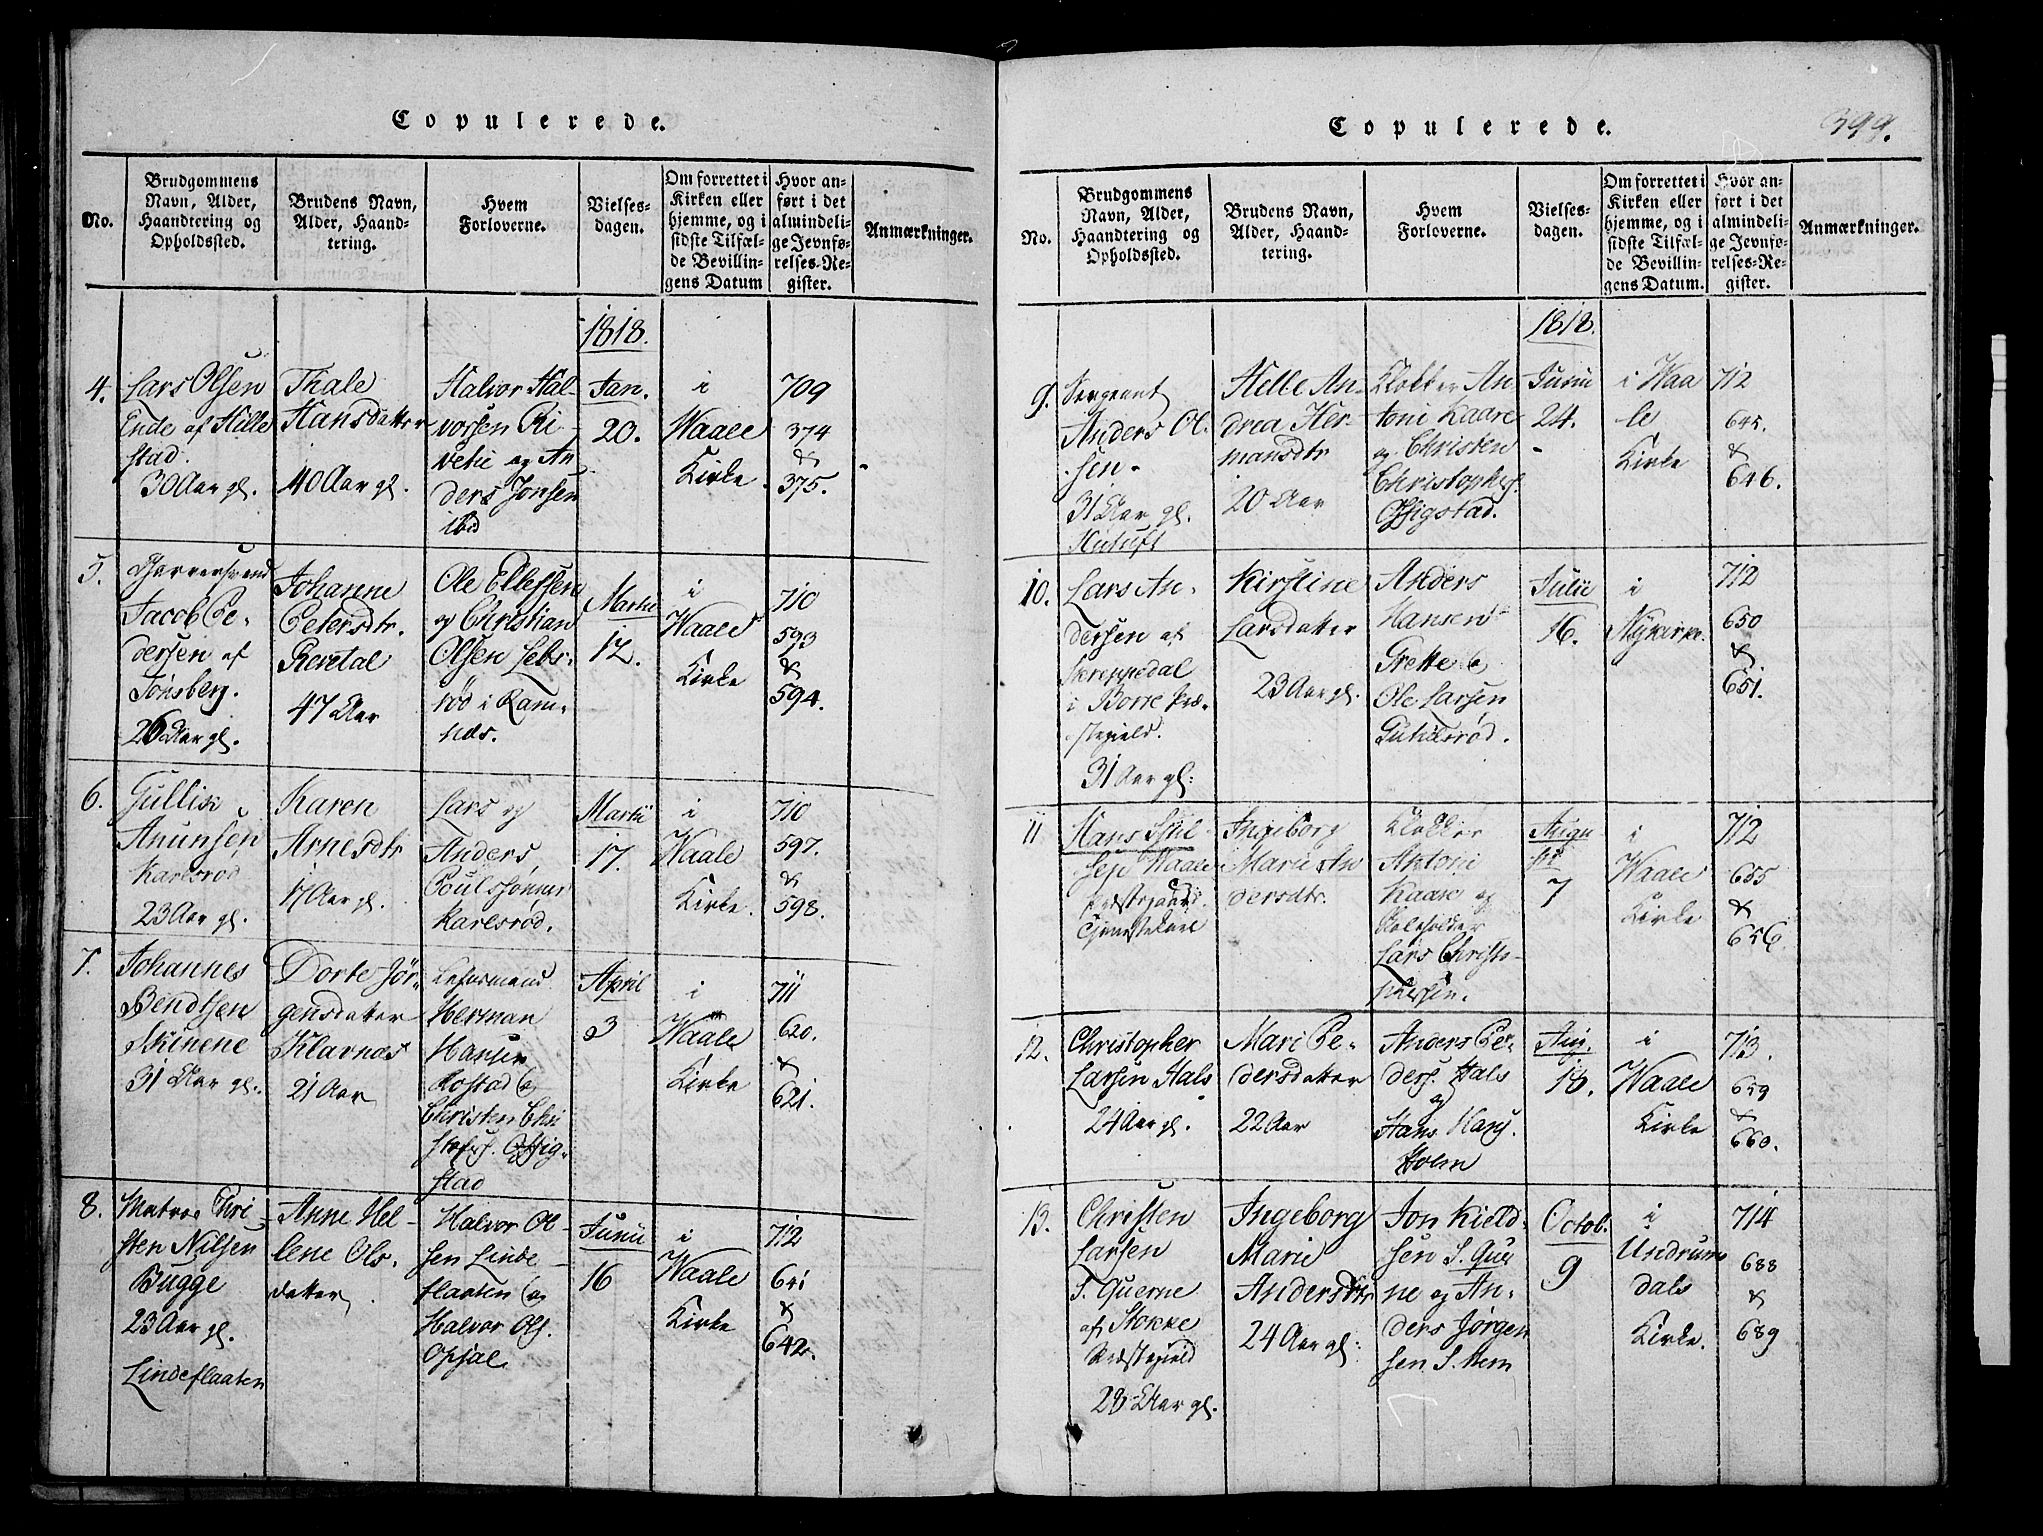 Copulerede.
No.
Brudgommens
Navn, Alder,
Haandtering og
Opholdssted.
Brudens Navn,
Alder, Haand-
tering.
Hvem
Forloverne.
Vielses-
dagen.
Om forrettet i
Kirken eller
hjemme, og i
sidste Tilfæl-
de Bevillin-
gens Datum
Hvor an-
ført i det
almindeli-
ge Jevnfø-
relses-Re-
gister.
Anmærkninger.
1818.
4.
Lars Olsen
Ende af Hille
stad.
30 Aar gl.
Thale
Hansdatter
40 Aar gl.
Halvor Hal-
vorsen Ri-
og An
ders Jonsen
ibd
Jan.
20.
i
Waale
Kirke
709
374
&
375.
5.
Jacob Pe-
dersen af
Tönsberg.
26 Aar gl.
Johanne
Petersdtr.
Rental
47 Aar
Ole Ellefsen
og Christian
Olsen Lebs-
rød i Ram-
nes.
Martii
12.
i
Waale
Kirke
710
593
&
594.
6.
Gullik
Anunsen
Karlsrød
23 Aar gl.
Karen
Arnesdtr
17 Aar gl.
Lars og
Anders
Poulssønner
Karlsrød.
Martii
17.
i
Waale
Kirke.
710
597.
&
598.
7.
Johannes
Bendtsen
31 Aar gl.
Dorte Jør-
gensdatter
Klavnæs
21 Aar
Herman
Hansen
Rostad &
Christen Chri
stofers.
stad
April
3
i
Waale
Kirke
711
620.
&
621.
8.
Matros Chri-
sten Nilsen
Bugge
23 Aar gl.
Lindeflaaten
Anne Hel-
lene Ols-
datter
Halvor Ol-
sen Linde-
flaaten og
Halvor Ols.
Opsal
Junii
16
i
Waale
Kirke
712
641
&
642.
Copulerede.
399.
No.
Brudgommens
Navn, Alder,
Haandtering og
Opholdssted.
Brudens Navn,
Alder, Haand-
tering.
Hvem
Forloverne.
Vielses-
dagen.
Om forrettet i
Kirken eller
hjemme, og i
sidste Tilfæl-
de Bevillin-
gens Datum.
Hvor an-
ført i det
almindeli-
ge Jevnfø-
relses-Re-
gister.
Anmærkninger.
1818.
9.
Sergeant
Anders Ol-
sen
31 Aar gl.
Helle An-
drea Her-
mansdtr
20 Aar
Klokker An-
toni Kaare
og Christen
Christophers.
Junii
24.
i Waa
le
Kirke
712
645.
&
646.
10.
Lars An-
dersen af
Skreppedal
i Borre Præ-
stegield.
31 Aar gl:
Kirstine
Larsdatter
23 Aar gl.
Anders
Hansen
Grette &
Ole Larsen
Julii
16.
i
Nykirke.
712
650
&
651.
11
Waale
Præstegaard.
Ingeborg
Marie An
dersdtr.
Klokker
Antoni
Kaare og
Lars Christo-
phersen.
Augu
sti
7
i
Waale
Kirke
712
655
&
656.
12.
Christopher
Larsen Hals
24 Aar gl.
Mari Pe-
dersdatter
22 Aar
Anders Pe-
ders. Hals
og
Hans Hans.
Holm
Aug.
18.
i
Waale
Kirke
713.
659
&
660.
13.
Christen
Larsen
S. Querne
af Stokke
Præstegield
28 Aar gl.
Ingeborg
Marie
Andersdtr
24 Aar gl:
Jon Kield-
sen S. Quer
ne og An-
ders Jørgen
sen S. Hem
Octob.
9
i
Undrums
dals
Kirke.
714
688
&
689